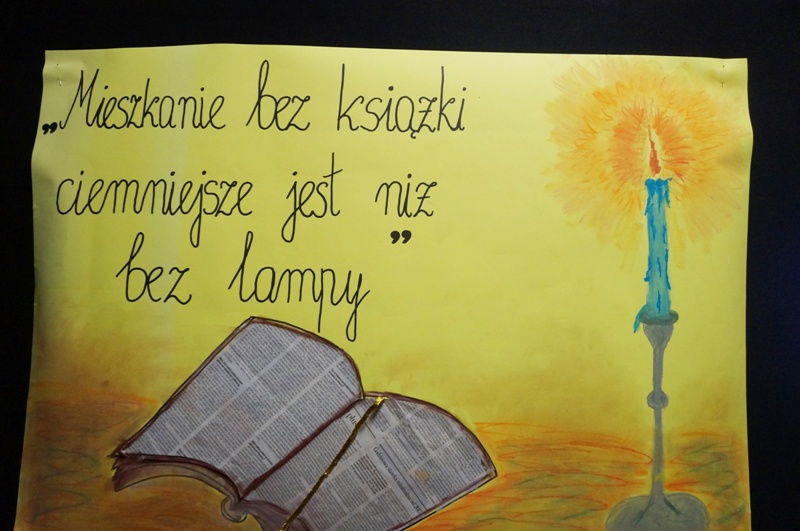 „Mieszkanie bez książki
ciemniejsze jest niz
bez lampy”